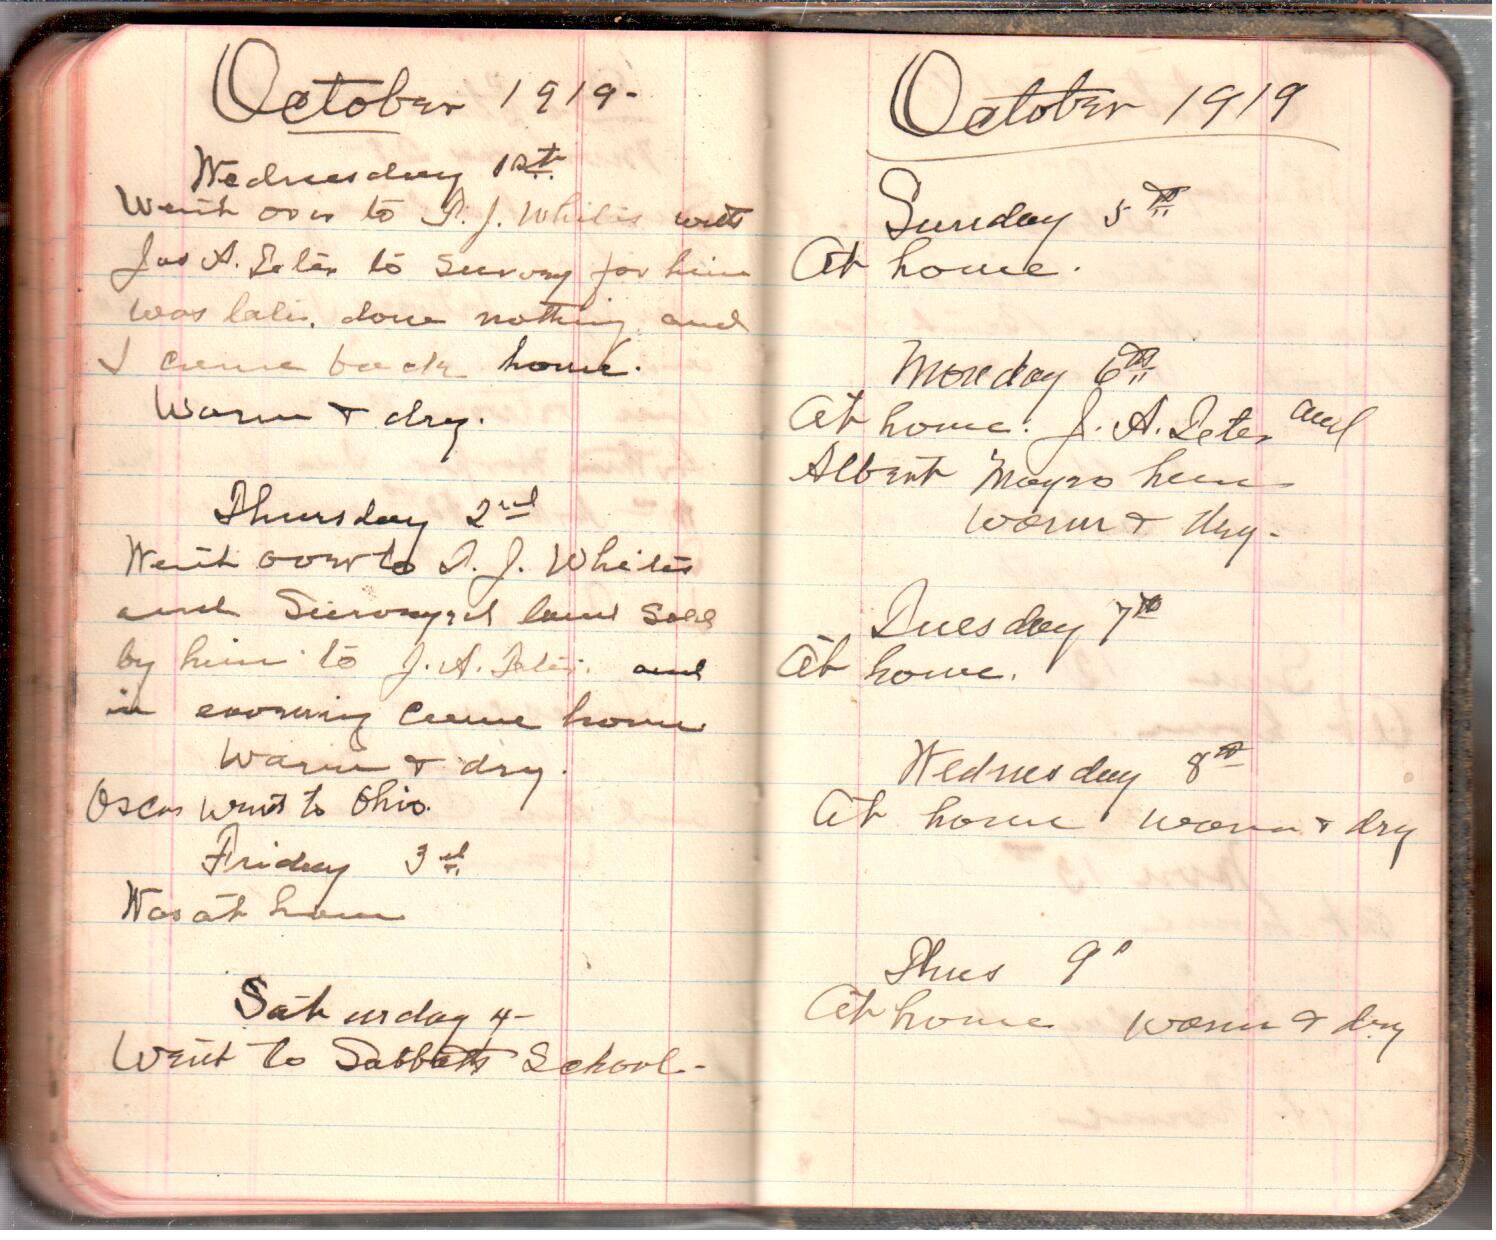 October 1919-
Wednesday 1st.
Went over to T. J. Whites with
Jas A. Teter to Survey for him
was late. done nothing and
I came back home.
Warm & dry.
Thursday 2nd
Went over to T. J. Whites
and Surveyed land Sold
by him to J. A. Teter. and
in evening came home
Warm & dry.
Oscar went to Ohio.
Friday 3rd.
Was at home
Saturday 4-
Went to Sabbath School-
October 1919
Sunday 5th
At home.
Monday 6th
At home. J. A. Teter and
Albert Mayro here
Warm & dry-
Tuesday 7th
At home.
Wednesday 8th
At home warm & dry
Thurs 9"
At home warm & dry